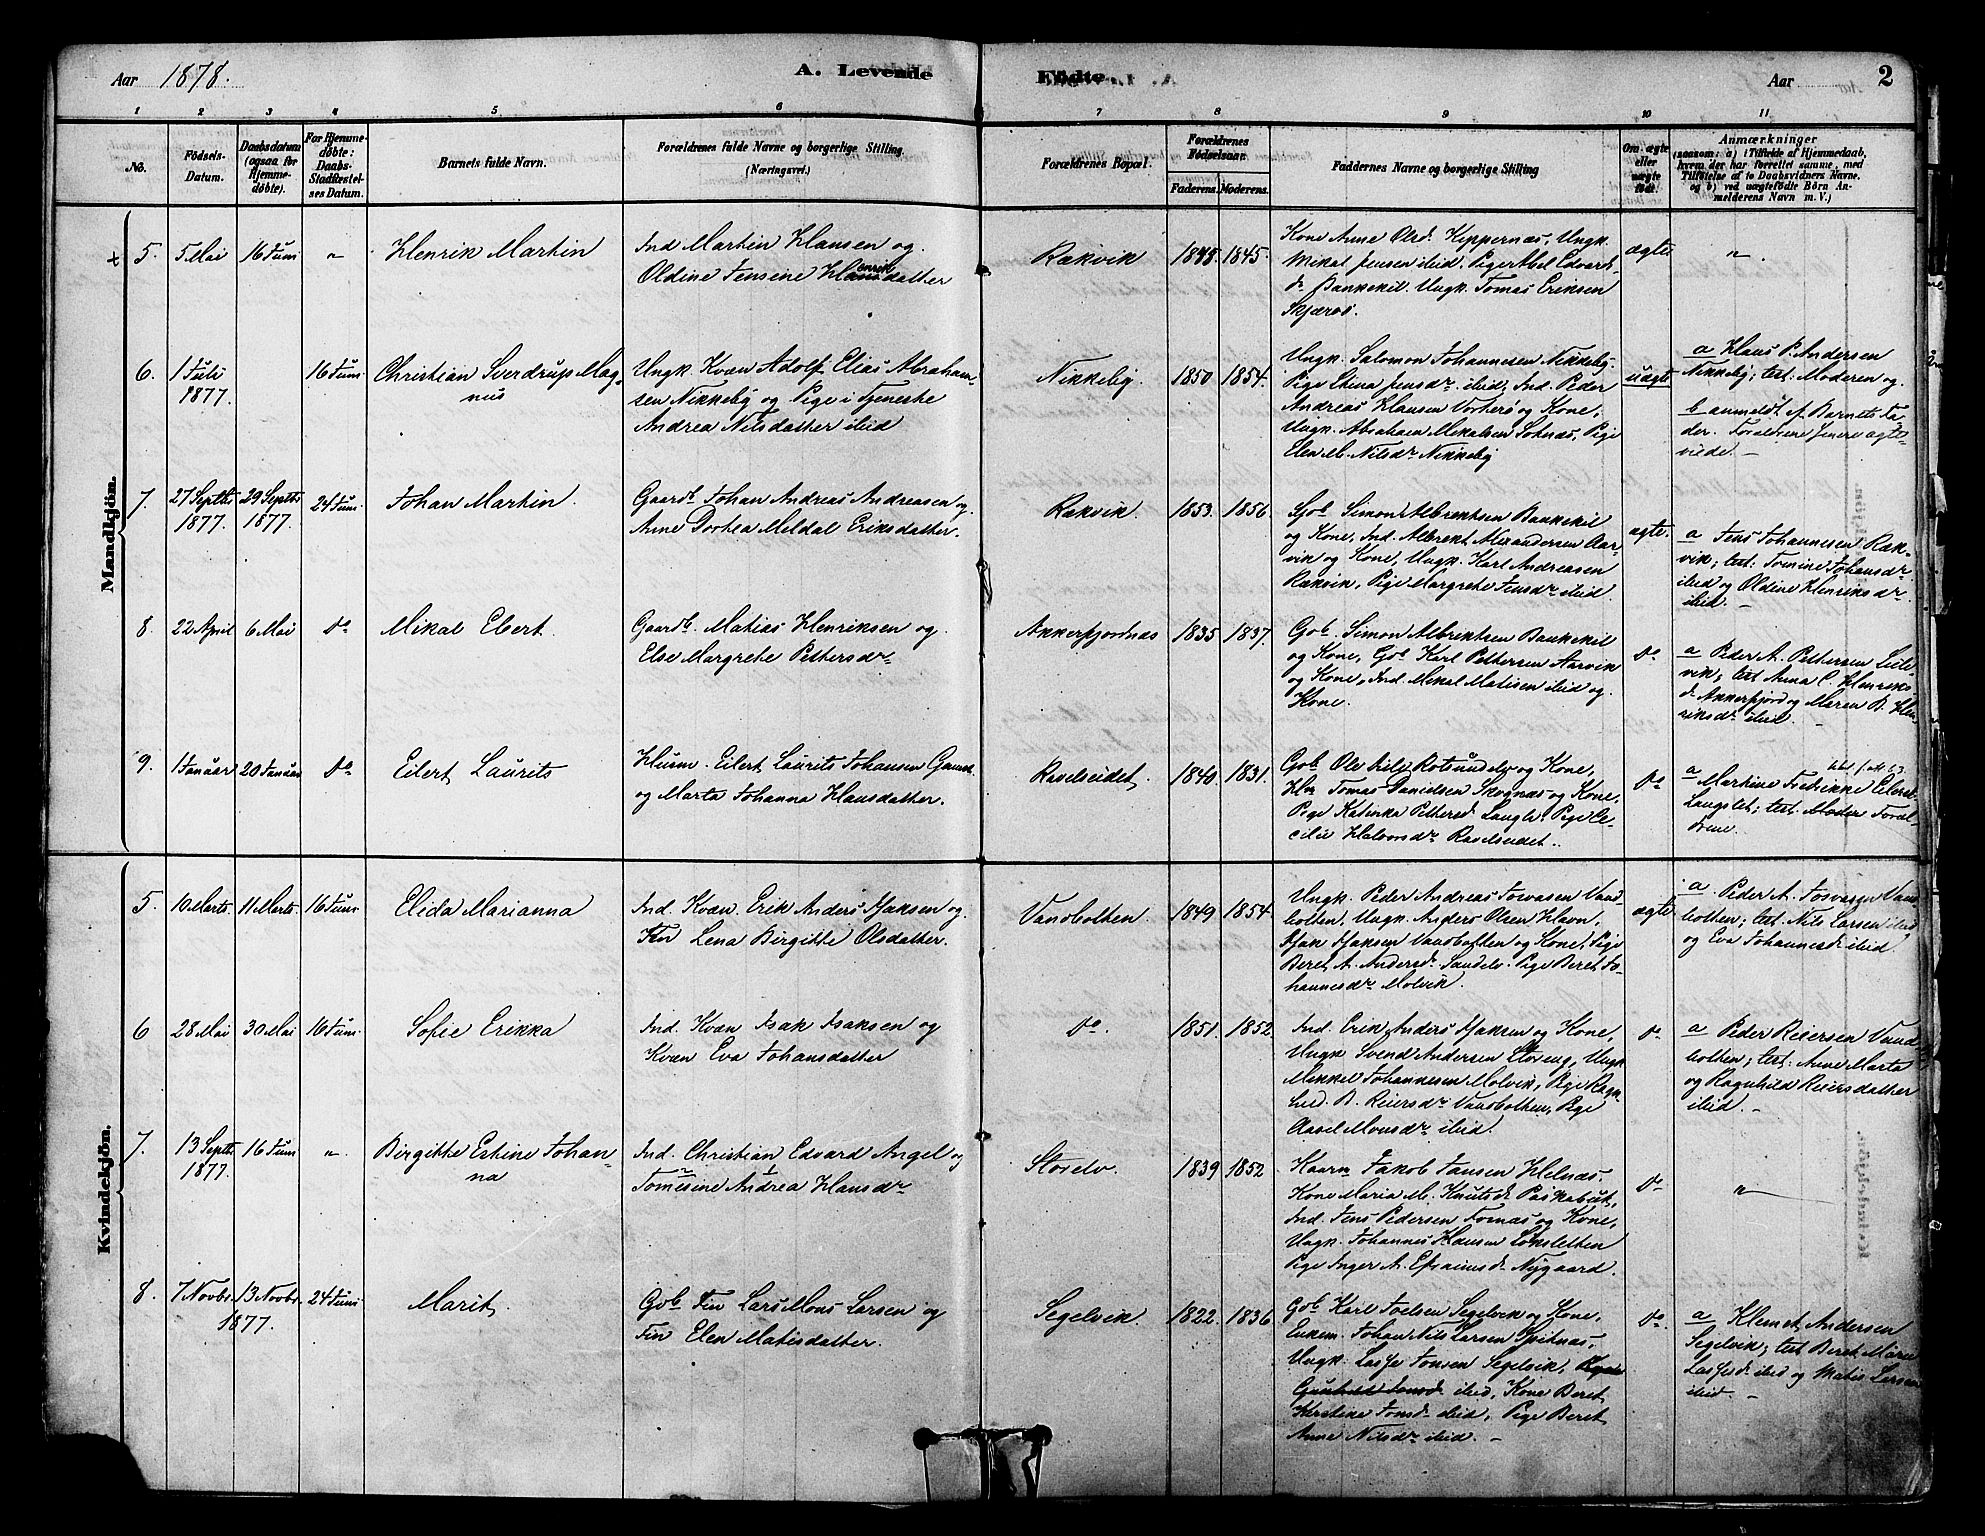 Aar 1878. A. Levende Fødte. Aar 2
1 2 3 4 5 6 7 8 9 10 11
No. Fødsels-Datum. Daabsdatum (ogsaa for Hjemmedøbte). For Hjemmedøbte: Daabs-Stadfæstelses Datum. Barnets fulde Navn. Forældrenes fulde Navne og borgerlige Stilling. (Næringsvei.) Forældrenes Bopæl. Forældrenes Fødselsaar. Faderens. Moderens. Faddernes Navne og borgerlige Stilling Om ægte eller uægte født. Anmærkninger (saasom: a) i Tilfælde af Hjemmedaab, hvem der har forrettet samme, med Tilføielse af to Daabsvidners Navne. og b) ved uægtefødte Børn Anmelderens Navn m. V.)
Mandkjön.
5. 5 Mai 16 Juni " Henrik Martin
Ind. Martin Hansen og
Oldine Jensine Henrikdatter
Rækvik 1848. 1845.
Kone Anne Olsd. Kippernæs, Ungk.
Mikal Jensen ibid. Pige Abel Edvards
dr Bankekil. Ungk. Tomas Eriksen
Skjærvø.
ægte "
6. 1 Juli 1877. 16 Juni Christian Sverdrup Mag-
nus
Ungk. Kvæn Adolf Elias Abraham-
sen Nikkeby og Pige i Tjeneste
Andrea Nilsdatter ibid
Nikkeby 1850 1854.
Ungk. Salomon Johannesen Nikkeby.
Pige Stina Jensdr ibid, Ind. Peder
Andreas Hansen Vorterø og Kone,
Ungk. Abraham Mikalsen Tohnæs, Pige
Elen M. Nilsdr Nikkeby
uægte
a Hans P. Andersen
Nikkeby; test. Moderen og
b anmeldt af Barnets Fa-
der. Forældrene senere ægte-
viede. -
7. 27 Septbr 1877. 29 Septbr 1877. 24 Juni Johan Martin.
Gaardb. Johan Andreas Andreasen og
Anne Dorthea Meldal Eriksdatter.
Rækvik 1853. 1856.
Gob. Simon Albrektsen Bankekil
og Kone, Ind. Albrekt Alexandersen Aar-
vik og Kone, Ungk. Karl Andreasen
Rækvik, Pige Margrethe Jensdr ibid.
ægte.
a Jens Johannesen Ræk-
vik; test. Tomine Johansdr
ibid og Oldine Henriksdr.
ibid. -
8. 22 April 6 Mai do Mikal Ebert.
Gaardb. Matias Henriksen og
Else Margrethe Pettersdr
Akkerfjordnæs 1835 1837.
Gob. Simon Albrektsen Bankekil
og Kone, Gob Karl Pettersen Aarvik
og Kone, Ind. Mikal Matisen ibid og
Kone.
do
a Peder A. Pettersen
vik; test Anna C. Henriks
dr Akkerfjord og Maren B. Hen-
riksdr ibid.
9. 1 Januar 20 Januar do Eilert Laurits
Husm. Eilert Laurits Johansen
og Marta Johanna Hansdatter.
Ravelseidet. 1840. 1831.
Gob. Ole Rotsundelv og Kone,
Tomas Danielsen Skognæs og Kone,
Pige Katinka Pettersd. Pige Ce-
cilie Halvorsdr Ravelseidet.
do
a Martine Fredrikke Eilersd.
Langslet; test. Moder Foræl-
drene.
Kvindekjön.
5. 10 Marts. 11 Marts. 16 Juni Elida Marianna
Ind. Kvæn. Erik Anders Isaksen og
Fin Lena Birgitte Olsdatter.
Vandbotten. 1849 1854.
Ungk. Peder Andreas Josvasen Vand-
botten, Ungk. Anders Olsen Havn,
Isak Isaksen Vandbotten og Kone, Pige
Beret A. Andersdr Sandelv. Pige Beret Jo-
hannesdr Molvik.
ægte
a. Peder A. Josvasen Vand
botten; test. Nils Larsen ibid
og Eva Johannesdr ibid
6 28 Mai 30 Mai 16 Juni. Sofie Erikka
Ind. Kvæn Isak Isaksen og
Kvæn Eva Johansdatter
do. 1851. 1852.
Ind. Erik Anders Isaksen og Kone,
Ungk Svend Andersen Storeng, Ungk
Mikkel Johannesen Molvik, Pige Ragn-
hild. B. Reiersdr Vandbotten, Pige
Aasel Monsdr ibid.
do
a Peder Reiersen Vand
botten; test. Anne Marta
og Ragnhild Reiersdatter
ibid. -
7. 13 Septbr. 1877. 16 Juni ". Birgitte Estine Johan-
na
Ind. Christian Edvard Angel og
Tomesine Andrea Hansdr
Storelv. 1839 1852
Kaarm Jakob Jansen Helnæs,
Kone Maria M. Knutsdr Paskabukt,
Ind. Jens Pedersen Tornæs og Kone,
Ungk. Johannes Hansen Løksletten
Pige Inger A. Efraimsdr Nygaard.
do "
8. 7 Novbr. 13 Novbr. 1877. 24 Juni Marit,
Gob. Fin Lars Mons Larsen og
Fin Elen Matisdatter.
Segelvik. 1822. 1836
Gob Karl Joelsen Segelvik og Kone,
Enkem. Johan Nils Larsen Spitnæs,
Ungk. Lasse Jonsen Segelvik,
Jonsd. ibid, Kone Beret
Kerstine Jonsd. ibid, Pige Beret
Anne Nilsdr ibid. -
do.
a Klemet Andersen
Segelvik; test Beret Marie
Lassesdr ibid og Matis Larsen
ibid. -